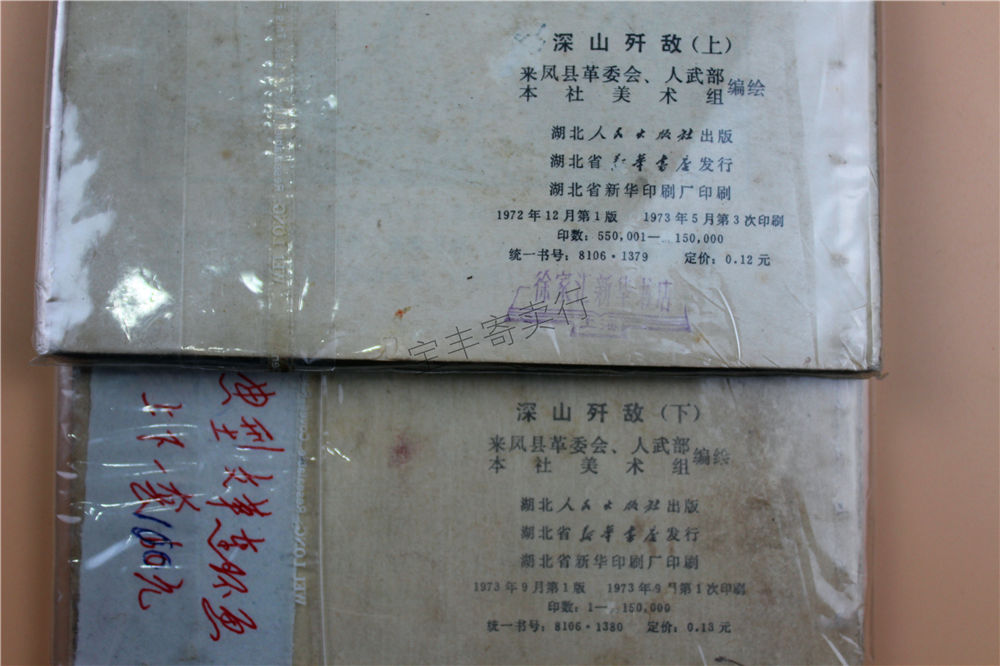 深山歼敌(上)
来凤县革委会、人武部
本社美术组
编绘
湖北人民出版社出版
湖北省新华书店发行
湖北省新华印刷厂印刷
1972年12月第1版 1973年5月第3次印刷
印数:550,001— 150,000
统一书号:8106·1379 定价:0.12元
徐家汇新华书店
宝丰寄卖行
深山歼敌(下)
来凤县革委会、人武部
本社美术组
编绘
湖北人民出版社出版
湖北省新华书店发行
湖北省新华印刷厂印刷
1973年9月第1版 1973年9月第1次印刷
印数:1— 150,000
统一书号:8106·1380 定价:0.13元
典型文革连环画
上下一套160元